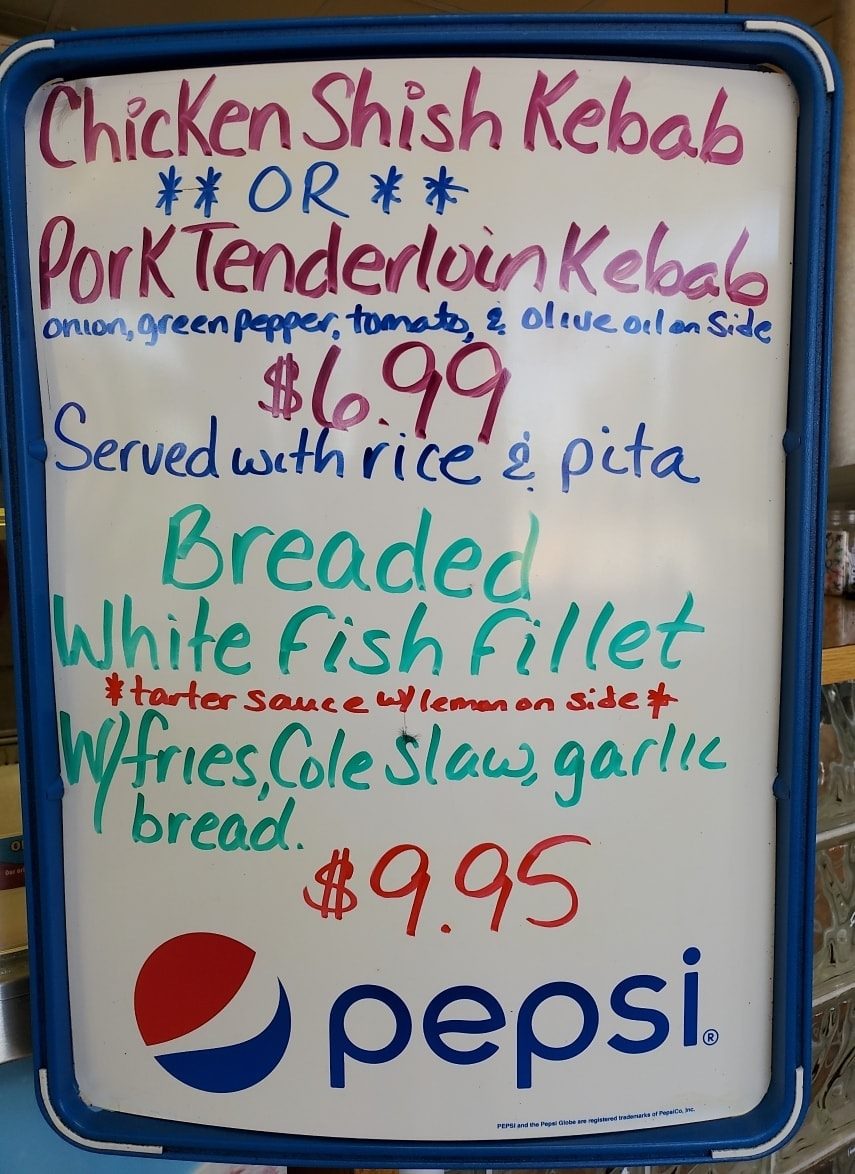 Chicken Shish Kebab
** OR **
Pork Tenderloin Kebab
onion, green pepper, tomato, & olive oil on side
$6.99
Served with rice & pita
Breaded
White fish fillet
*tarter sauce w/ lemon on side*
W/fries, Cole slaw, garlic
bread.
$9.95
pepsi®
PEPSI and the Pepsi Globe are registered trademarks of PepsiCo, Inc.